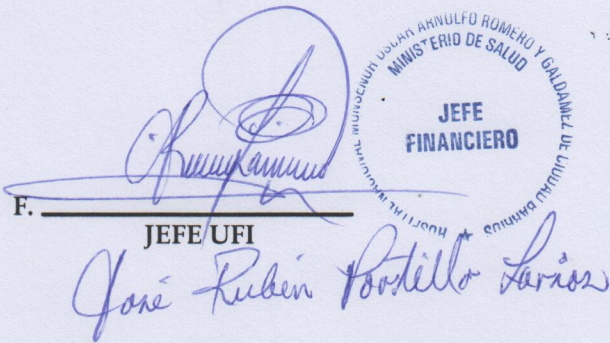 HOSPITAL NACIONAL MONSEÑOR OSCAR ARNULFO ROMERO Y GALDAMEZ DE CIUDAD BARRIOS
MINISTERIO DE SALUD
JEFE
FINANCIERO
F.
JEFE UFI
José Rubén Portillo